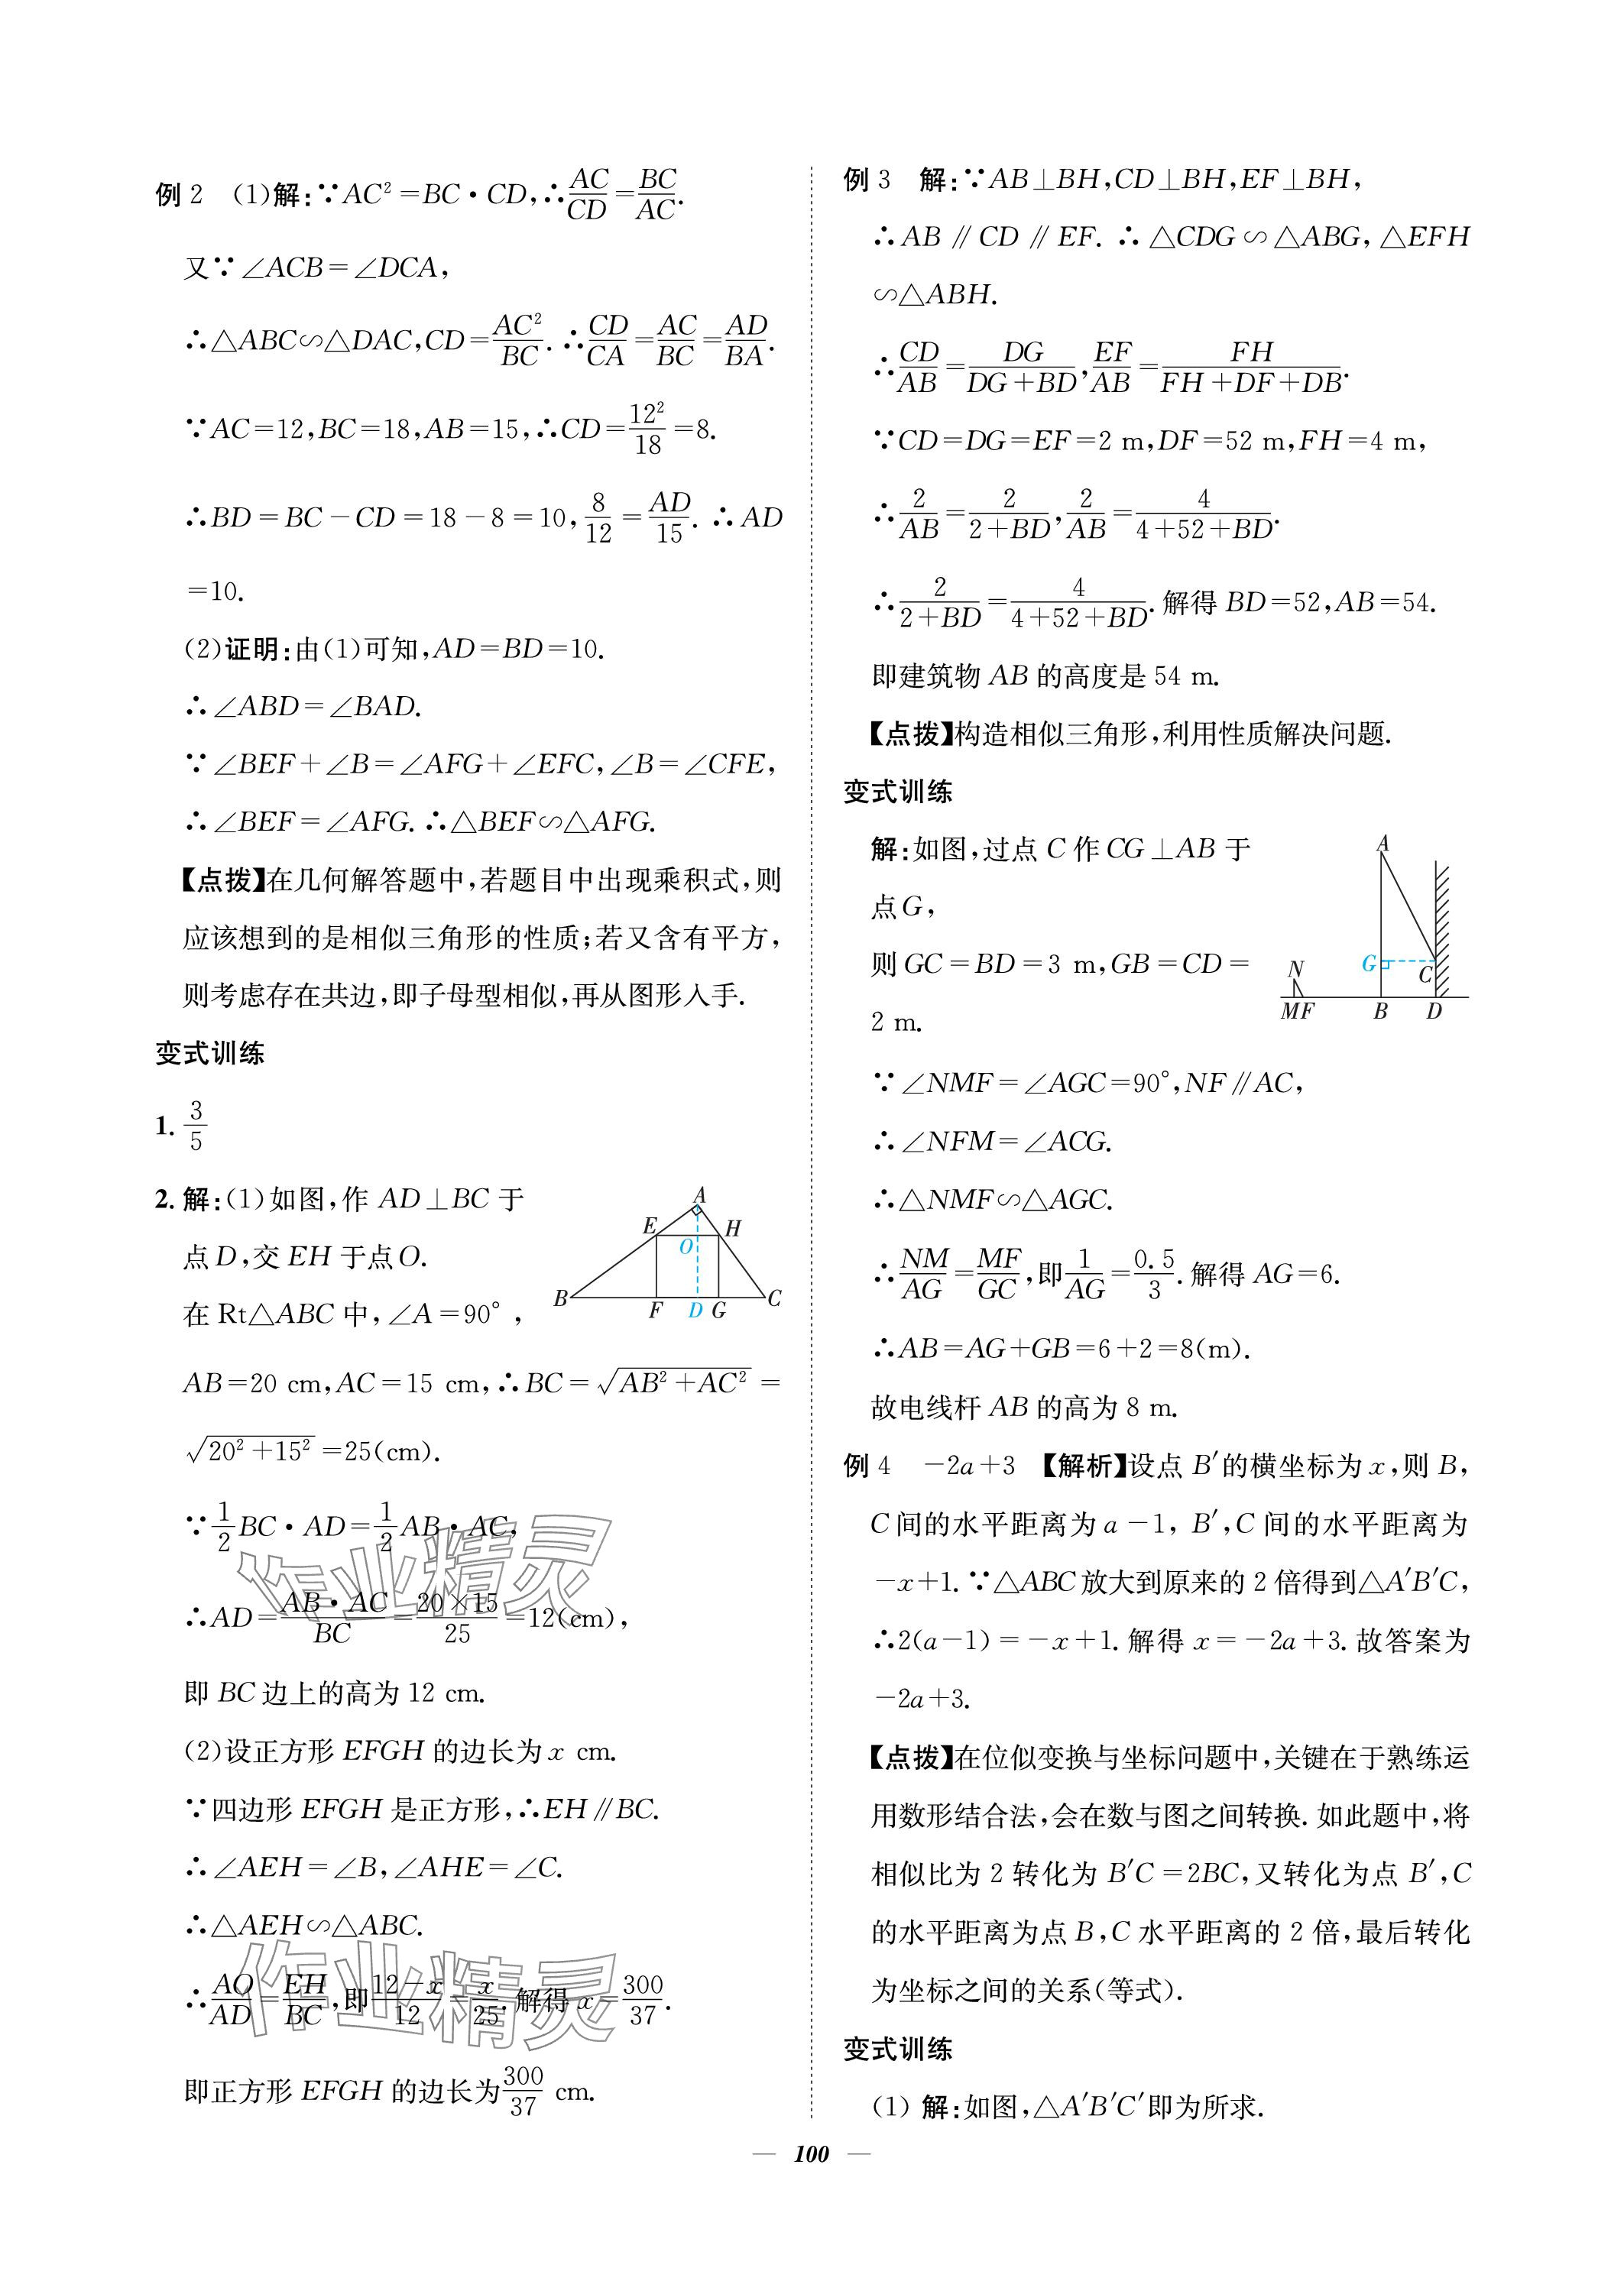 例 2 (1)解:∵AC²=BC·CD,∴AC/CD=BC/AC.
又∵∠ACB=∠DCA,
∴△ABC∽△DAC,CD=AC²/BC.∴CD/CA=AC/BC=AD/BA.
∵AC=12,BC=18,AB=15,∴CD=12²/18=8.
∴BD=BC-CD=18-8=10,8/12=AD/15.∴AD
=10.
(2)证明:由(1)可知,AD=BD=10.
∴∠ABD=∠BAD.
∵∠BEF+∠B=∠AFG+∠EFC,∠B=∠CFE,
∴∠BEF=∠AFG.∴△BEF∽△AFG.
【点拨】在几何解答题中,若题目中出现乘积式,则
应该想到的是相似三角形的性质;若又含有平方,
则考虑存在共边,即子母型相似,再从图形入手.
变式训练
1. 3/5
2. 解:(1)如图,作 AD⊥BC 于
点 D,交 EH 于点 O.
在 Rt△ABC 中,∠A=90°,
A
E
H
O
B
F
D
G
C
AB=20 cm,AC=15 cm,∴BC=√(AB²+AC²)=
√(20²+15²)=25(cm).
∵1/2 BC·AD=1/2 AB·AC,
∴AD=AB·AC/BC=20×15/25=12(cm),
即 BC 边上的高为 12 cm.
(2)设正方形 EFGH 的边长为 x cm.
∵四边形 EFGH 是正方形,∴EH∥BC.
∴∠AEH=∠B,∠AHE=∠C.
∴△AEH∽△ABC.
∴AO/AD=EH/BC,即12-x/12=x/25.解得 x=300/37.
即正方形 EFGH 的边长为300/37 cm.
作业精灵
作业精灵
例 3 解:∵AB⊥BH,CD⊥BH,EF⊥BH,
∴AB∥CD∥EF.∴△CDG∽△ABG,△EFH
∽△ABH.
∴CD/AB=DG/DG+BD,EF/AB=FH/FH+DF+DB.
∵CD=DG=EF=2 m,DF=52 m,FH=4 m,
∴2/AB=2/2+BD,2/AB=4/4+52+BD.
∴2/2+BD=4/4+52+BD.解得 BD=52,AB=54.
即建筑物 AB 的高度是 54 m.
【点拨】构造相似三角形,利用性质解决问题.
变式训练
解:如图,过点 C 作 CG⊥AB 于
点 G,
则 GC=BD=3 m,GB=CD=
2 m.
A
G
C
N
MF
B
D
∵∠NMF=∠AGC=90°,NF∥AC,
∴∠NFM=∠ACG.
∴△NMF∽△AGC.
∴NM/AG=MF/GC,即1/AG=0.5/3.解得 AG=6.
∴AB=AG+GB=6+2=8(m).
故电线杆 AB 的高为 8 m.
例 4 -2a+3 【解析】设点 B′的横坐标为 x,则 B,
C 间的水平距离为 a-1,B′,C 间的水平距离为
-x+1.∵△ABC 放大到原来的 2 倍得到△A′B′C,
∴2(a-1)=-x+1.解得 x=-2a+3.故答案为
-2a+3.
【点拨】在位似变换与坐标问题中,关键在于熟练运
用数形结合法,会在数与图之间转换.如此题中,将
相似比为 2 转化为 B′C=2BC,又转化为点 B′,C
的水平距离为点 B,C 水平距离的 2 倍,最后转化
为坐标之间的关系(等式).
变式训练
(1) 解:如图,△A′B′C′即为所求.
— 100 —